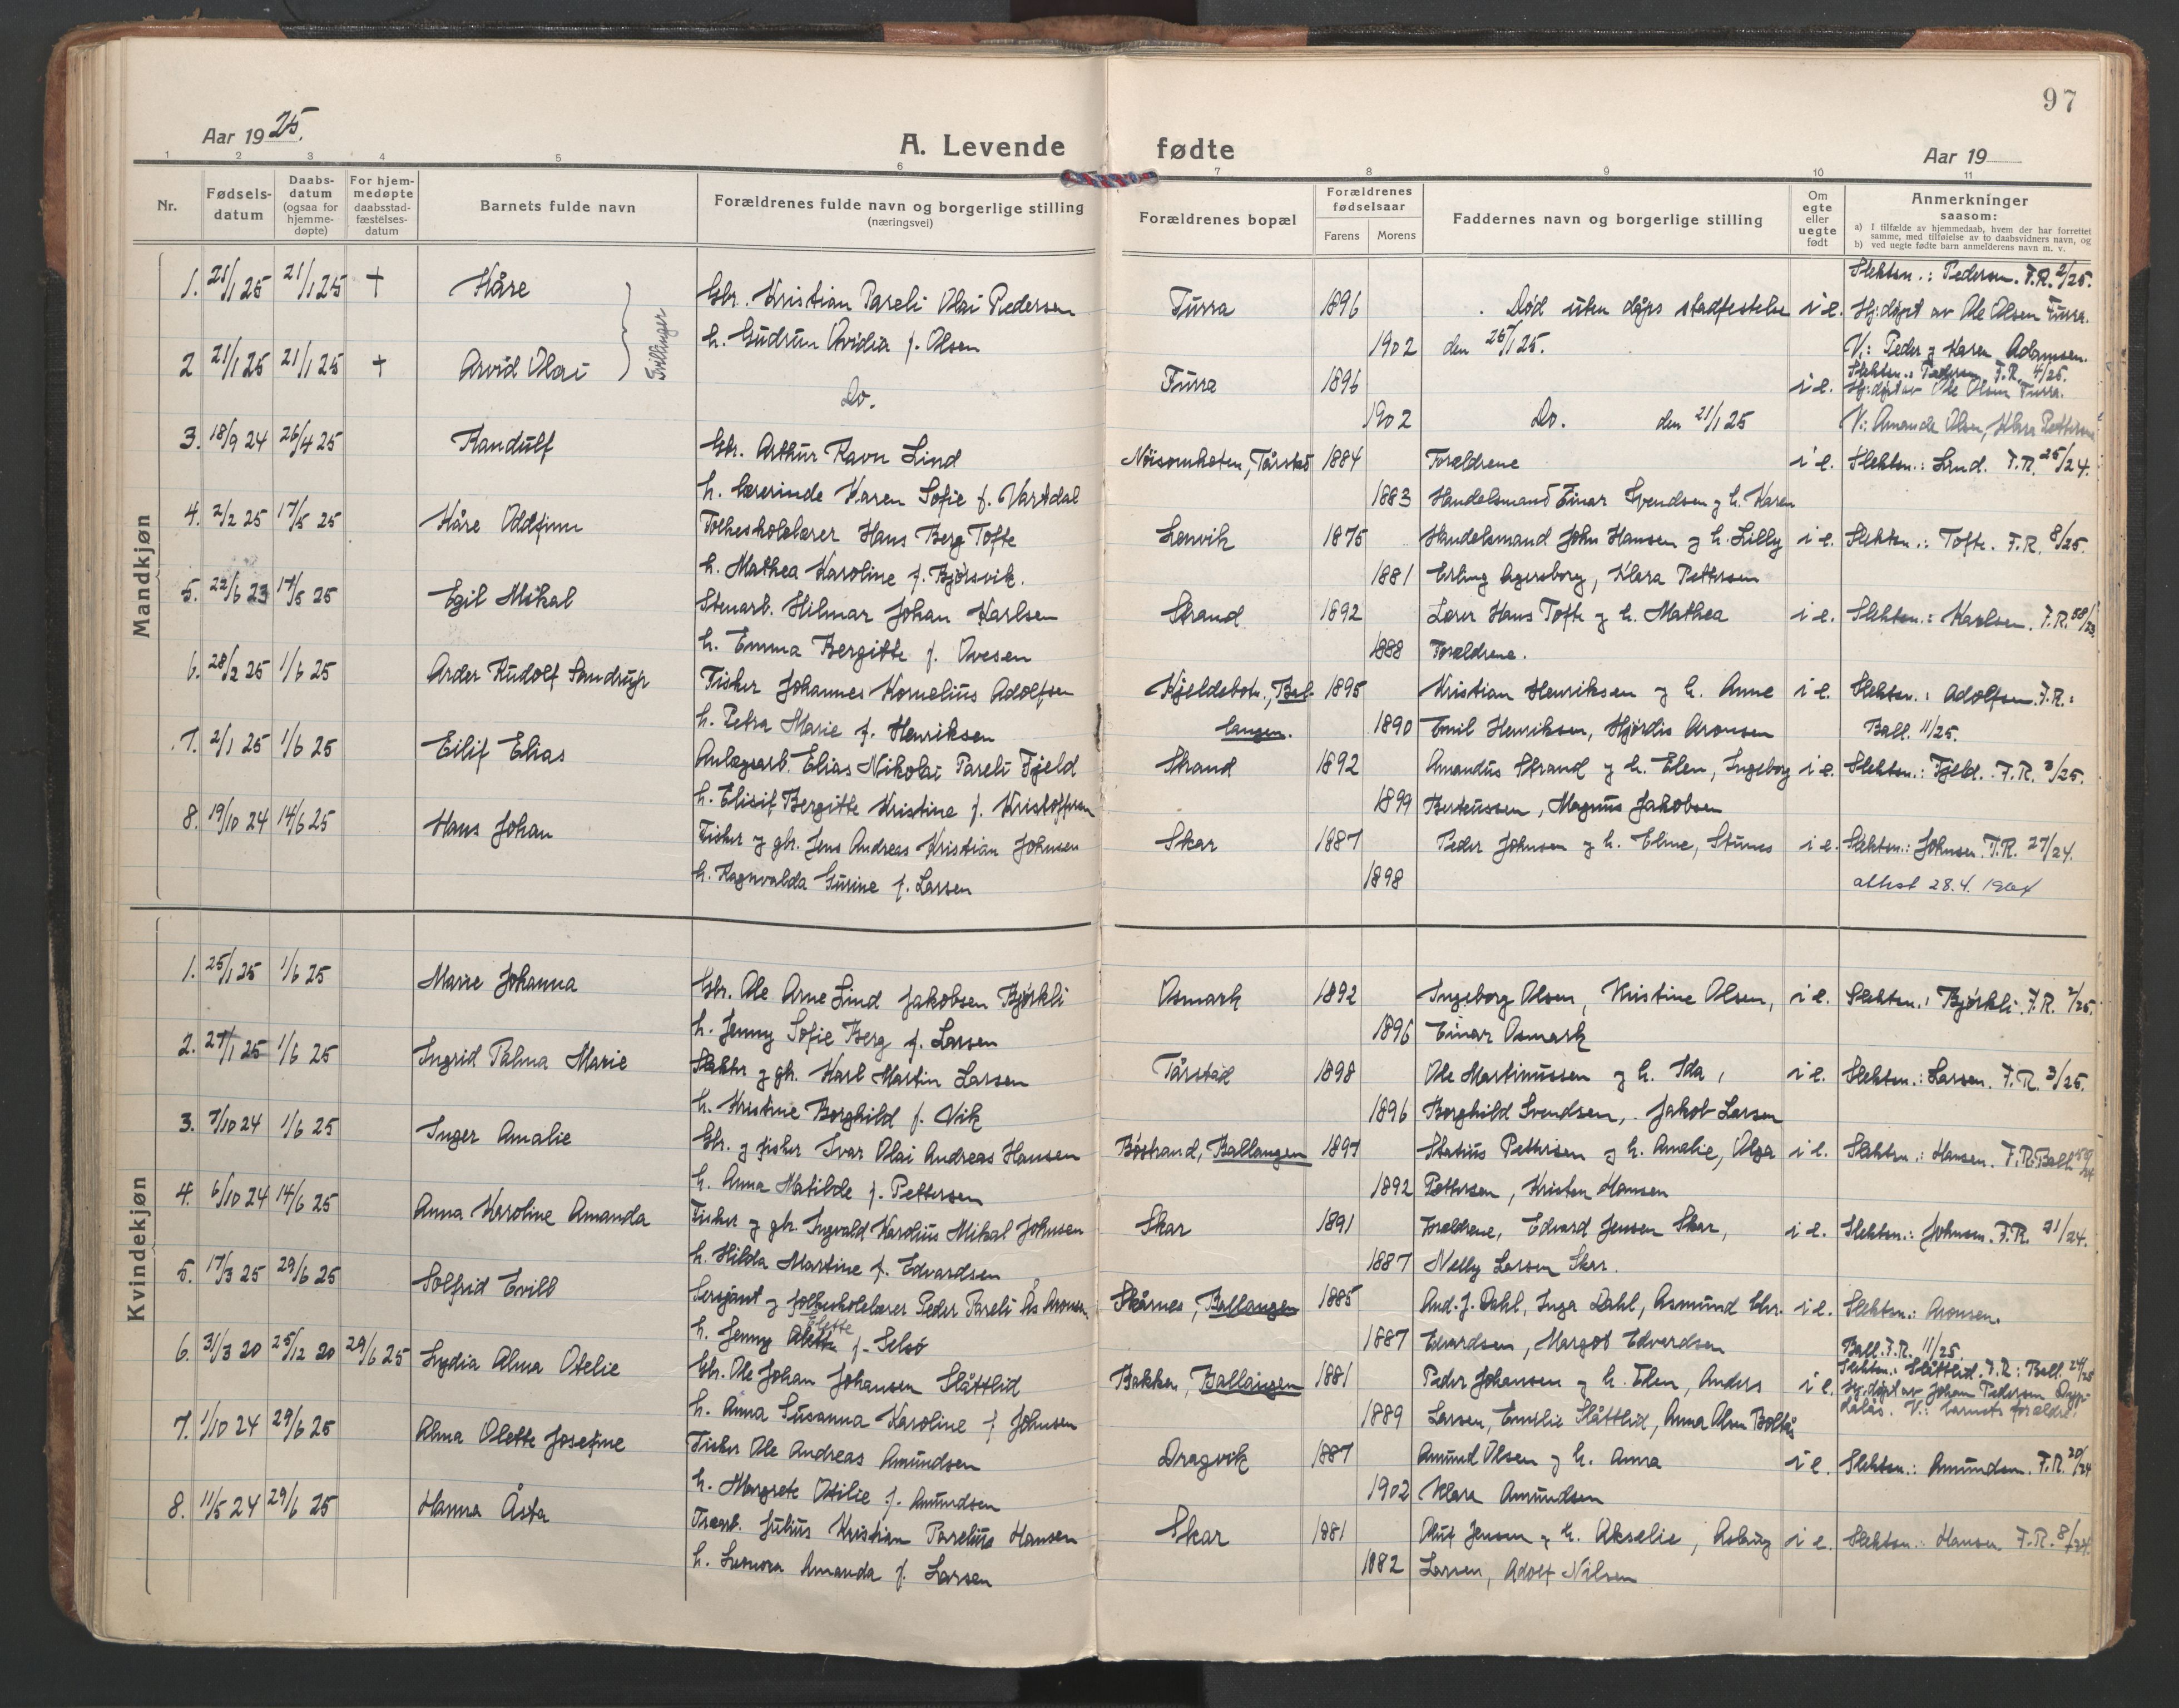 97
Aar 1925.
A. Levende fødte
Aar 19
1 2 3 4 5 6 7 8 9 10 11
Nr.
Fødsels-datum
Daabs-datum (ogsaa for hjemme-døpte)
For hjem-medøpte daabsstad-fæstelses-datum
Barnets fulde navn
Forældrenes fulde navn og borgerlige stilling
(næringsvei)
Forældrenes bopæl
Forældrenes fødselsaar
Farens Morens
Faddernes navn og borgerlige stilling
Om egte eller uegte født
Anmerkninger
saasom:
a) I tilfælde av hjemmedaab, hvem der har forrettet samme, med tilføielse av to daabsvidners navn, og
b) ved uegte fødte barn anmelderens navn m. v.
Mandkjøn
Slektsn.: Pedersen. F.R. 2/25.
1. 21/1 25 21/1 25 + Kåre Gbr. Kristian Pareli Olai Pedersen Furra 1896 Død uten dåps stadfestelse i e. Hj.døpt av Ole Olsen Furra.
Tvillinger
h. Gudrun Ovidia f. Olsen 1902 den 26/1 25. V.: Peder g Karen Adamsen.
2 21/1 25 21/1 25 + Arvid Olai Do. Furra 1896 i e. Slektsn.: Pedersen F.R. 4/25.
Hj.døpt av Ole Olsen Furra.
1902 Do. den 21/1 25 V.: Amanda Olsen, Klara Pettersen
3. 18/9 24 26/4 25 Randulf Gbr. Arthur Ravn Lind Nöisomheten, Tårstad 1884 Forældrene i e. Slektsn.: Lind. F.R. 25/24.
h. lærerinde Karen Sofie f. Vartdal 1883 Handelsmand Einar Svendsen g h. Karen
4. 2/2 25 17/5 25 Kåre Oddfinn Folkeskolelærer Hans Berg Tofte Lenvik 1875 Handelsmand John Hansen g h. Lilly i e. Slektsn.: Tofte. F.R. 8/25.
h. Mathea Karoline f. Bjørsvik. 1881 Erling Agersborg, Klara Pettersen
5. 22/6 23 17/5 25 Egil Mikal Stenarb. Hilmar Johan Karlsen Strand 1892 Lærer Hans Tofte g h. Mathea i e. Slektsn.: Karlsen. F.R. 58/23.
h. Emma Bergitte f. Ovesen 1888 Forældrene.
6. 28/2 25 1/6 25 Arder Rudolf Sandrup Fisker Johannes Kornelius Adolfsen Kjeldebotn, Bal- 1895 Kristian Henriksen g h. Anne i e. Slektsn.: Adolfsen. F.R.:
h. Petra Marie f. Henriksen langen. 1890 Emil Henriksen, Hjördis Aronsen Ball. 11/25.
7. 2/1 25 1/6 25 Eilif Elias Anlægsarb. Elias Nikolai Pareli Fjeld Strand 1892 Amandus Strand g h. Elen, Ingeborg i e. Slektsn.: Fjeld. F.R. 3/25.
h. Elisif Bergitte Kristine f. Kristoffersen 1899 Berteussen, Magnus Jakobsen
8. 19/10 24 14/6 25 Hans Johan Fisker g gbr. Jens Andreas Kristian Johnsen Skar 1887 Peder Johnsen g h. Eline, Stunes i e. Slektsn.: Johnsen. F.R. 27/24.
h. Ragnvalda Gurine f. Larsen 1898 attest 28.4. 1964
Kvindekjøn
1. 25/1 25 1/6 25 Marie Johanna Gbr. Ole Arne Lind Jakobsen Bjørkli Osmark 1892 Ingeborg Olsen, Kristine Olsen, i e. Slektsn.: Bjørkli. F.R. 2/25.
h. Jenny Sofie Berg f. Larsen 1896 Einar Osmark
2. 27/1 25 1/6 25 Ingrid Palma Marie Slakter g gbr. Karl Martin Larsen Tårstad 1898 Ole Martinussen g h. Ida, i e. Slektsn.: Larsen. F.R. 3/25.
h. Kristine Borghild f. Vik 1896 Borghild Svendsen, Jakob Larsen
3. 7/10 24 1/6 25 Inger Amalie Gbr. g fisker Ivar Olai Andreas Hansen Böstrand, Ballangen 1897 Statius Pettersen g h. Amalie, Olga i e. Slektsn.: Hansen. F.R. Ball.
h. Anna Matilde f. Pettersen 1892 Pettersen, Kristen Hansen
4. 6/10 24 14/6 25 Anna Karoline Amanda Fisker g gbr. Ingvald Kardius Mikal Johnsen Skar 1891 Forældrene, Edvard Jensen Skar, i e. Slektsn.: Johnsen. F.R. 21/24.
h. Hilda Martine f. Edvardsen 1887 Nelly Larsen Skar.
5. 17/3 25 29/6 25 Solfrid Evill Sersjant g folkeskolelærer Peder Pareli Ås Aronsen Skårnes, Ballangen 1885 And. J. Dahl, Inga Dahl, Asmund Chr. i e. Slektsn.: Aronsen.
Olette
h. Jenny f. Selsö 1887 Edvardsen, Margot Edvardsen Ball. F.R. 11/25.
6. 31/3 20 25/12 20 29/6 25 Lydia Alma Otelie Gbr. Ole Johan Johansen Slåttlid Bakken, Ballangen 1881 Peder Johansen g h. Elen, Anders i e. Slektsn.: Slåttlid. F.R.: Ball. 24/25
Hj.døpt av Johan Pedersen Dyp-
h. Anna Susanna Karoline f Johnsen 1889 Larsen, Emilie Slåttlid, Anna Olsen Boltås dalås. V.: barnets forældre.
7. 1/10 24 29/6 25 Alma Olette Josefine Fisker Ole Andreas Amundsen Dragvik 1887 Amund Olsen g h. Anna i e. Slektsn.: Amundsen. F.R. 20/24
h. Margrete Otilie f. Amundsen 1902 Klara Amundsen
8. 11/5 24 29/6 25 Hanna Åsta Træarb. Julius Kristian Parelius Hansen Skar 1881 Oluf Jensen g h. Akselie, Aslaug i e. Slektsn.: Hansen F.R. 8/24.
h. Leonora Amanda f. Larsen 1882 Larsen, Adolf Nilsen